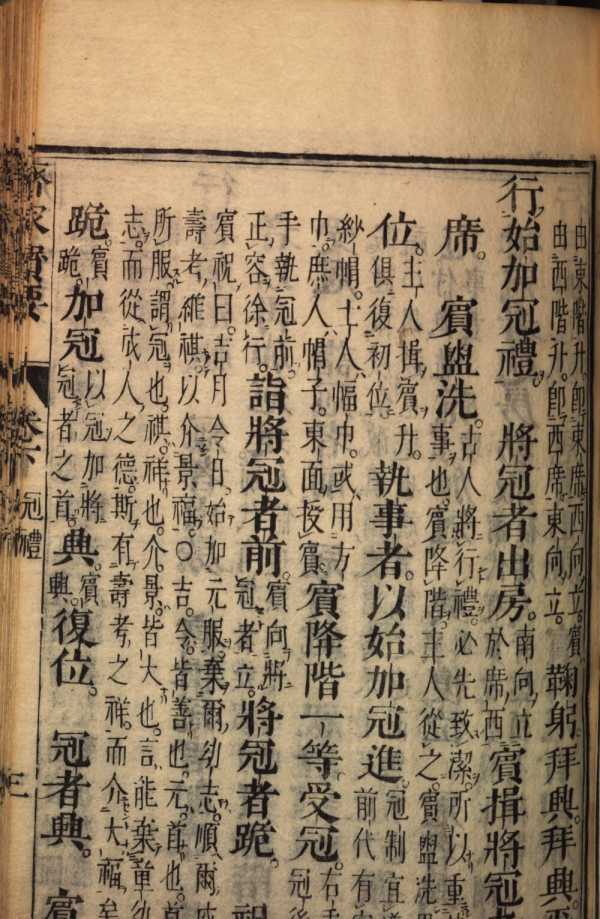 由東階升。卽東席西向立。賓
由西階升。卽西席東向立。
鞠躬拜興。拜興。
行始加冠禮。　將冠者出房。
南向立
於席西
賓揖將冠
席。　賓盥洗。
古人將行禮。必先致潔。所以重
事也。賓降階。主人從之。賓盥洗
位。
主人揖賓升。
俱復初位
執事者。以始加冠進。
冠制宜
前代有
紗帽。士人幅巾。或用方
巾。庶人帽子。東面授賓
賓降階一等受冠。
右手
冠後
手執冠前。
正容徐行。
詣將冠者前。
賓向將
冠者立。
將冠者跪。　祝
賓祝曰。吉月令日。始加元服。棄爾幼志。順爾成
壽考。維祺。以介景福。○吉。令。皆善也。元。首也。首
所服。謂冠也。祺。祥也。介。景。皆大也。言能棄童幼
志。而從成人之德。斯有壽考之祥。而介大福。矣
跪。
賓
跪。
加冠
以冠加將
冠者之首。
興。
賓
興。
復位。　冠者興。　賓
齊家寶要　卷六　冠禮　三